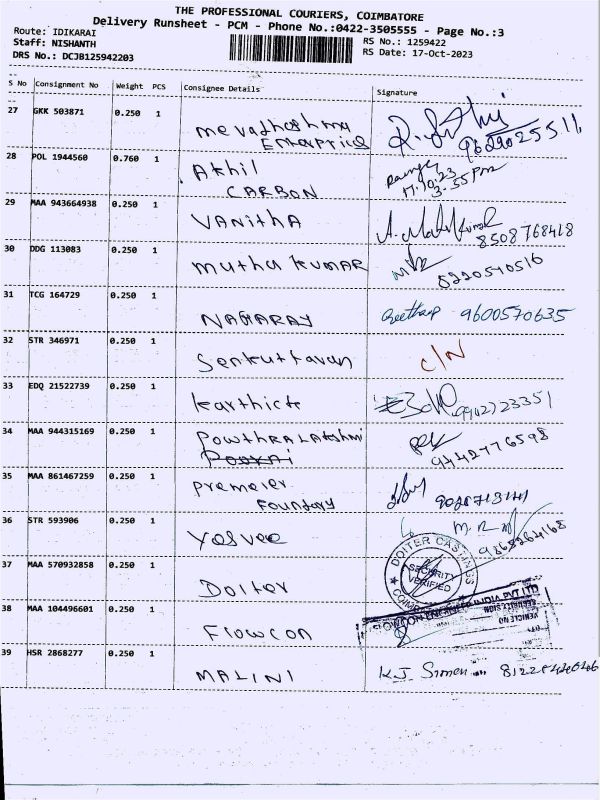 THE PROFESSIONAL COURIERS, COIMBATORE
Delivery Runsheet - PCM - Phone No.:0422-3505555 - Page No.:3
Route: IDIKARAI
Staff: NISHANTH
RS No.: 1259422
DRS No.: DCJB125942203
RS Date: 17-Oct-2023
S No Consignment No Weight PCS Consignee Details Signature
27 GKK 503871 0.250 1
Enterprices
9629025511
28 POL 1944560 0.760 1 Akhil
CARBON
17.10.23
3.55 pm
29 MAA 943664938 0.250 1 VANITHA
8508768418
30 DDG 113083 0.250 1 Muthu KUMAR
8220540516
31 TCG 164729 0.250 1 NAGARAJ
9600570635
32 STR 346971 0.250 1 Senkuttavan C/N
33 EDQ 21522739 0.250 1 Karthick
34 MAA 944315169 0.250 1
9442776598
35 MAA 861467259 0.250 1 Premeier
Foundary
36 STR 593906 0.250 1 Yesvee
9865264168
DOITER CASTINGS
SECURITY
VERIFIED
37 MAA 570932858 0.250 1 Doiter
38 MAA 104496601 0.250 1 Flowcon
FLOWCON ENGINEER INDIA PVT LTD
VEHICLE NO
39 HSR 2868277 0.250 1 MALINI
K.J.